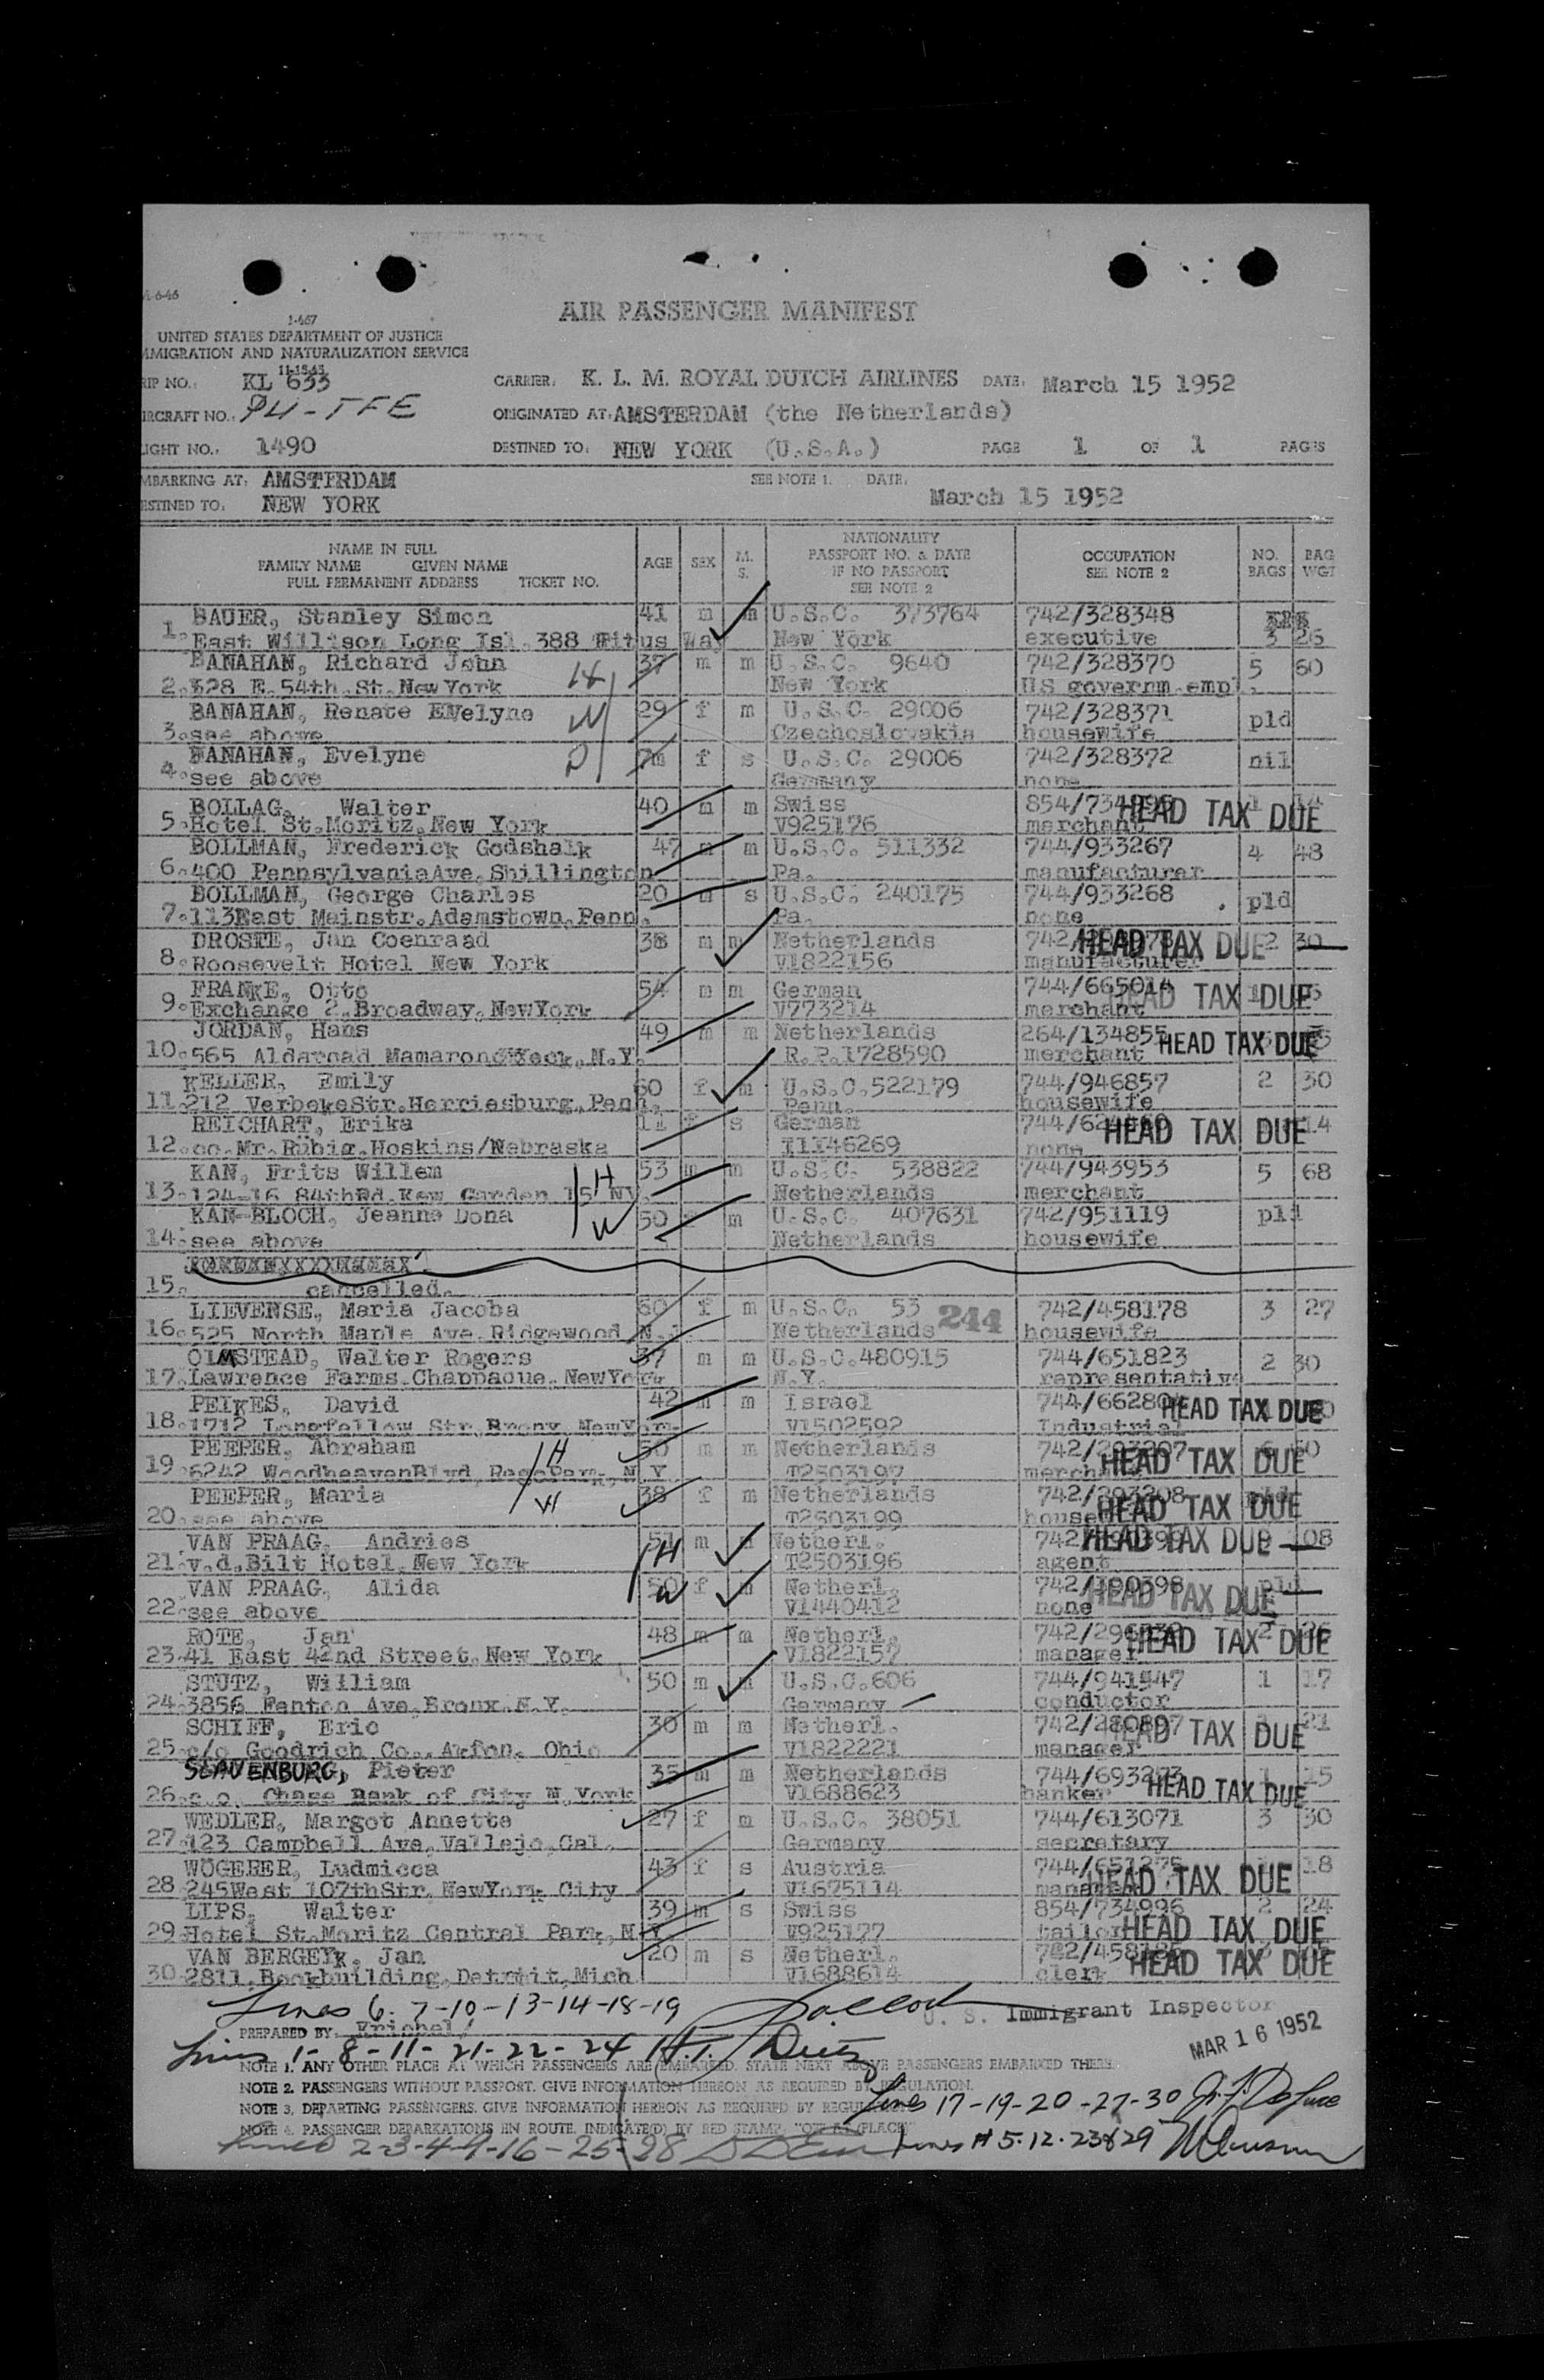 A-6-46
1-467
UNITED STATES DEPARTMENT OF JUSTICE
MMIGRATION AND NATURALIZATION SERVICE
11-15-45
AIR PASSENGER MANIFEST
RIP NO.: KL 633 CARRIER: K. L. M. ROYAL DUTCH AIRLINES DATE: March 15 1952
IRCRAFT NO.: PH-TFE ORIGINATED AT: AMSTERDAM (the Netherlands)
LIGHT NO.: 1490 DESTINED TO: NEW YORK (U.S.A.) PAGE 1 OF 1 PAGES
MBARKING AT: AMSTERDAM SEE NOTE 1. DATE: March 15 1952
ESTINED TO: NEW YORK
NAME IN FULL
FAMILY NAME GIVEN NAME
FULL PERMANENT ADDRESS TICKET NO. AGE SEX M. S. NATIONALITY PASSPORT NO. & DATE IF NO PASSPORT SEE NOTE 2 OCCUPATION SEE NOTE 2 NO. BAGS BAG WGT
BAUER, Stanley Simon 41 m m U.S.C. 373764 742/328348
1. East Willison Long Isl. 388 Titus Way New York executive 3 26
BANAHAN, Richard John 37 m m U.S.C. 9640 742/328370 5 60
2. 328 E. 54th. St. New York H New York US governm.empl.
BANAHAN, Renate EVelyne 29 f m U.S.C. 29006 742/328371 pld
3. see above W Czechoslovakia housewife
BANAHAN, Evelyne 7m f s U.S.C. 29006 742/328372 nil
4. see above D Germany none
BOLLAG, Walter 40 m m Swiss 854/734 HEAD TAX DUE 1 14
5. Hotel St.Moritz, New York V925176 merchant
BOLLMAN, Frederick Godshalk 47 m m U.S.C. 511332 744/933267 4 48
6. 400 PennsylvaniaAve. Shillington Pa. manufacturer
BOLLMAN, George Charles 20 m s U.S.C. 240175 744/933268 pld
7. 113East Mainstr. Adamstown, Penn. Pa. none
DROSTE, Jan Coenraad 38 m m Netherlands 742/ HEAD TAX DUE 2 30
8. Roosevelt Hotel New York V1822156 manufacturer
FRANKE, Otto 54 m m German 744/665014 HEAD TAX DUE
9. Exchange 2, Broadway, NewYork V773214 merchant
JORDAN, Hans 49 m m Netherlands 264/134855 HEAD TAX DUE
10. 565 Aldaroad Mamaroneck, N.Y. R.P.1728590 merchant
KELLER, Emily 60 f m U.S.C.522179 744/946857 2 30
11. 212 VerbekeStr. Harriesburg, Penn. Penn. housewife
REICHART, Erika 11 f s German 744/624 HEAD TAX DUE 14
12. co. Mr. Rübig. Hoskins/Nebraska II146269 none
KAN, Frits Willem 53 m m U.S.C. 538822 744/943953 5 68
13. 124-16 84thRd. Kew Garden 15 NY. H Netherlands merchant
KAN-BLOCH, Jeanne Dona 50 f m U.S.C. 407631 742/951119 pld
14. see above W Netherlands housewife
15. cancelled.
LIEVENSE, Maria Jacoba 60 f m U.S.C. 53 244 742/458178 3 27
16. 525 North Maple Ave. Ridgewood N.J. Netherlands housewife
OLMSTEAD, Walter Rogers 37 m m U.S.C.480915 744/651823 2 30
17. Lawrence Farms. Chappaque. NewYork N.Y. representative
PEIKES, David 42 m m Israel 744/6628 HEAD TAX DUE
18. 1712 Longfellow Str. Bronx, NewYork V1502592 Industrial
PEEPER, Abraham 50 m m Netherlands 742/293207 HEAD TAX DUE
19. 6242 WoodheavenBlvd, RegoPark, N.Y. H T2503197 merchant
PEEPER, Maria 38 f m Netherlands 742/293208 HEAD TAX DUE
20. see above W T2503199 house
VAN PRAAG, Andries 51 m m Netherl. 742/ HEAD TAX DUE 08
21. v.d. Bilt Hotel. New York H T2503196 agent
VAN PRAAG, Alida 50 f m Netherl. 742/ HEAD TAX DUE pld
22. see above W V1440412 none
ROTE, Jan 48 m m Netherl. 742/29 HEAD TAX DUE 2 26
23. 41 East 42nd Street, New York V1822157 manager
STUTZ, William 50 m m U.S.C.606 744/941947 1 17
24. 3856 Fenton Ave. Bronx. N.Y. Germany conductor
SCHIFF, Eric 30 m m Netherl. 742/280897 HEAD TAX DUE 21
25. c/o Goodrich Co., Akron, Ohio V1822221 manager
SLAVENBURG, Pieter 35 m m Netherlands 744/693 HEAD TAX DUE 1 15
26. c.o. Chase Bank of City N.York V1688623 banker
WEDLER, Margot Annette 27 f m U.S.C. 38051 744/613071 3 30
27. 123 Campbell Ave, Vallejo, Cal. Germany secretary
WÖGERER, Ludmicca 43 f s Austria 744/65 HEAD TAX DUE 18
28. 245West 107thStr. NewYork City V1675114 manager
LIPS, Walter 39 m s Swiss 854/734996 2 24
29. Hotel St.Moritz Central Park, N.Y. V925177 tailor HEAD TAX DUE
VAN BERGEYk, Jan 20 m s Netherl. 742/458 HEAD TAX DUE
30. 2811, Bookbuilding, Detroit, Mich V1688614 clerk
Lines 6. 7-10-13-14-18-19 U. S. Immigrant Inspector
PREPARED BY:
MAR 16 1952
Lines 1-8-11-21-22-24
NOTE 1. ANY OTHER PLACE AT WHICH PASSENGERS ARE EMBARKED, STATE NEXT ABOVE PASSENGERS EMBARKED THERE.
NOTE 2. PASSENGERS WITHOUT PASSPORT. GIVE INFORMATION HEREON AS REQUIRED BY REGULATION.
NOTE 3. DEPARTING PASSENGERS. GIVE INFORMATION HEREON AS REQUIRED BY REGULATION
Lines 17-19-20-27-30
NOTE 4. PASSENGER DEPARKATIONS EN ROUTE. INDICATE(D) BY RED STAMP, "OFF AT (PLACE)"
Lines 2-3-4-9-16-25-28 Lines # 5.12.23&29